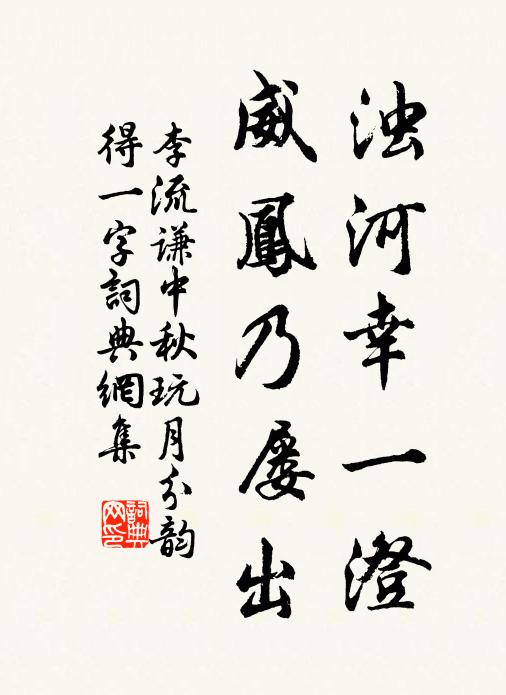 浊河幸一澄
威鳳乃屡出
李流谦中秋玩月分韵
得一字詞典網集
詞典
网印